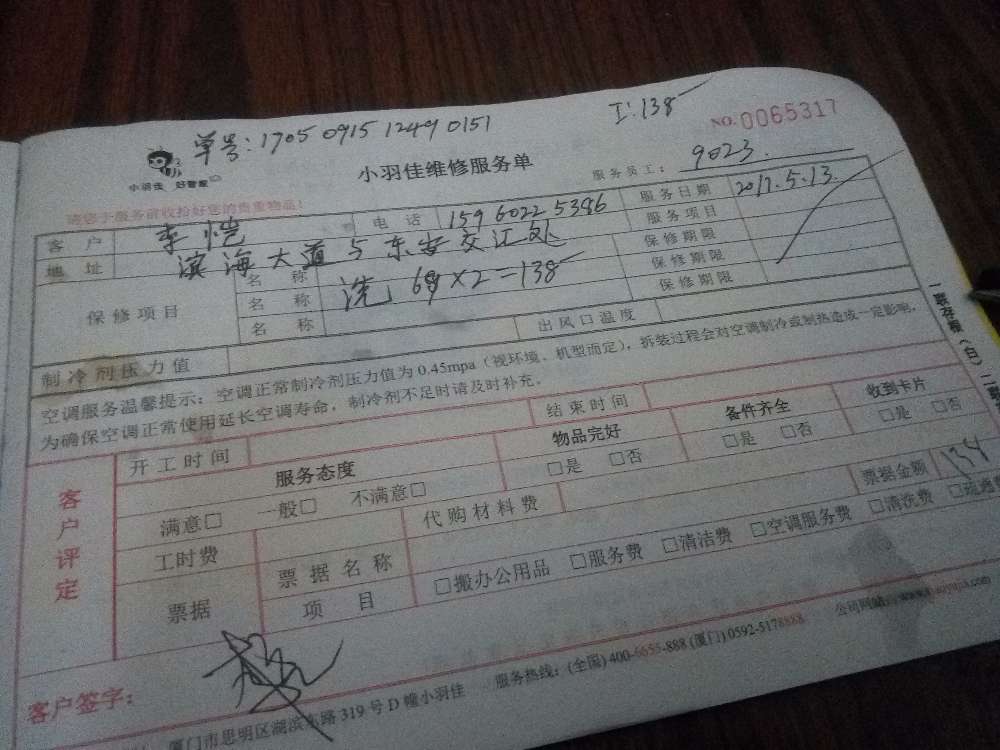 单号:1705 0915 1249 0151
工:138
NO.0065317
小羽佳 好管家
小羽佳维修服务单
服务员工:9023.
请您于服务前收拾好您的贵重物品!
客户 李恺 电话 159 6022 5386 服务日期 2017.5.13.
地址 滨海大道与东安交汇处 服务项目
保修项目
名称 洗 69×2=138 保修期限
名称 保修期限
名称 保修期限
制冷剂压力值 出风口温度
空调服务温馨提示:空调正常制冷剂压力值为0.45mpa(视环境、机型而定),拆装过程会对空调制冷或制热造成一定影响,
为确保空调正常使用延长空调寿命,制冷剂不足时请及时补充。
客户评定
开工时间 结束时间
服务态度 物品完好 备件齐全 收到卡片
满意□ 一般□ 不满意□ □是 □否 □是 □否 □是 □否
工时费 代购材料费 票据金额
票据
票据名称
项目 □搬办公用品 □服务费 □清洁费 □空调服务费 □清洗费 □疏通费
客户签字:
厦门市思明区湖滨东路319号D幢小羽佳 服务热线:(全国)400-6655-888(厦门)0592-5178888 公司网站
一联存根(白)二联